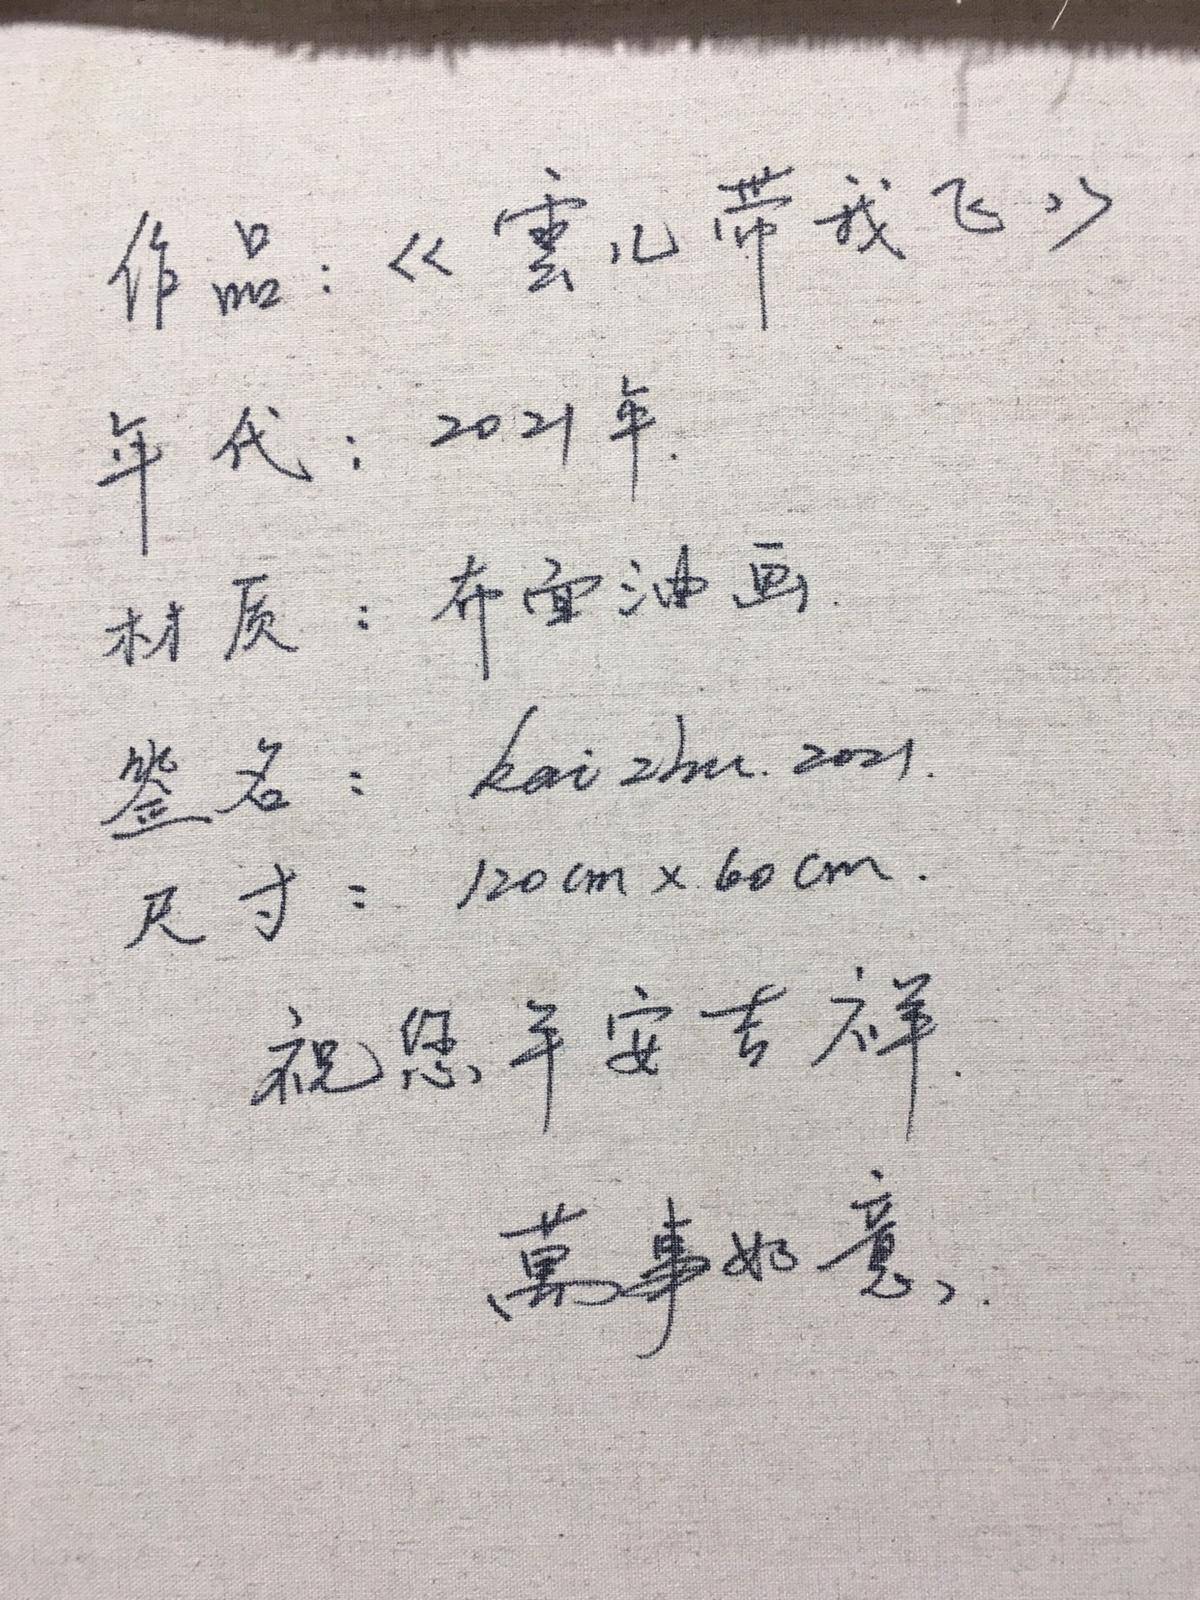 作品：《雲儿带我飞》
年代：2021年.
材质：布面油画.
签名：kai zhu. 2021.
尺寸：120cm x 60cm.
祝您平安吉祥.
萬事如意、.